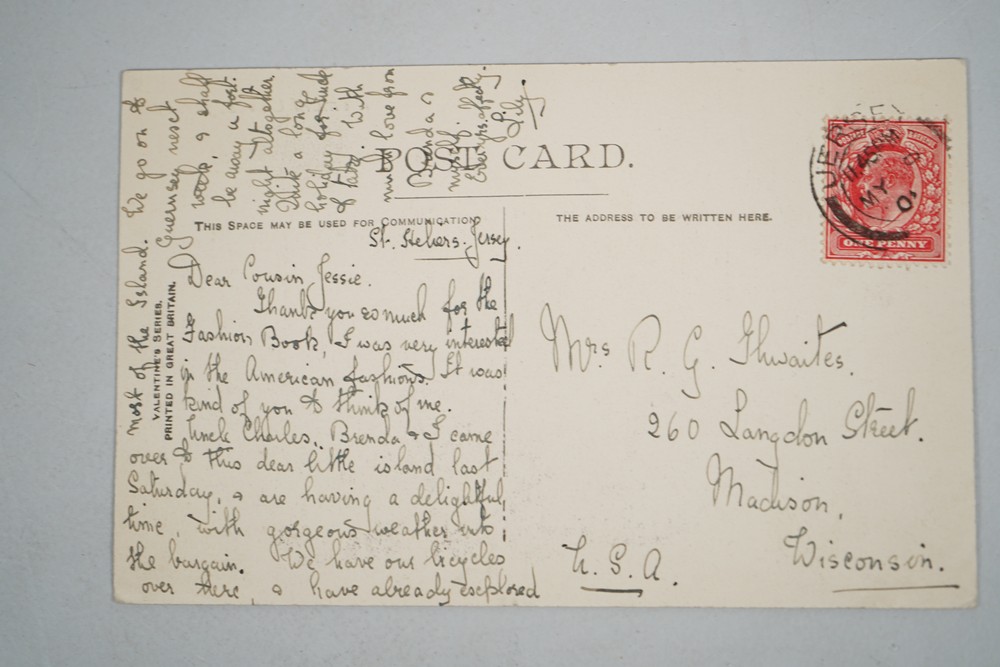 POST CARD.
THIS SPACE MAY BE USED FOR COMMUNICATION
THE ADDRESS TO BE WRITTEN HERE.
St. Heliers. Jersey.
Dear Cousin Jessie.
Thank you so much for the
Fashion Book, I was very interested
in the American fashions. It was
kind of you to think of me.
Uncle Charles, Brenda & I came
over to this dear little island last
Saturday, & are having a delightful
time, with gorgeous weather into
the bargain. We have our bicycles
over here, & have already explored
most of the Island. We go on to
Guernsey next
week, & shall
be away a fort-
night altogether.
Quite a long
holiday for such
of
With
much love from
Brenda &
myself.
Ever yrs. affectly.
Lily.
VALENTINE'S SERIES.
PRINTED IN GREAT BRITAIN.
Mrs R. G. Thwaites.
260 Langdon Street.
Madison,
Wisconsin.
U. S. A.
JERSEY
MY
ONE PENNY